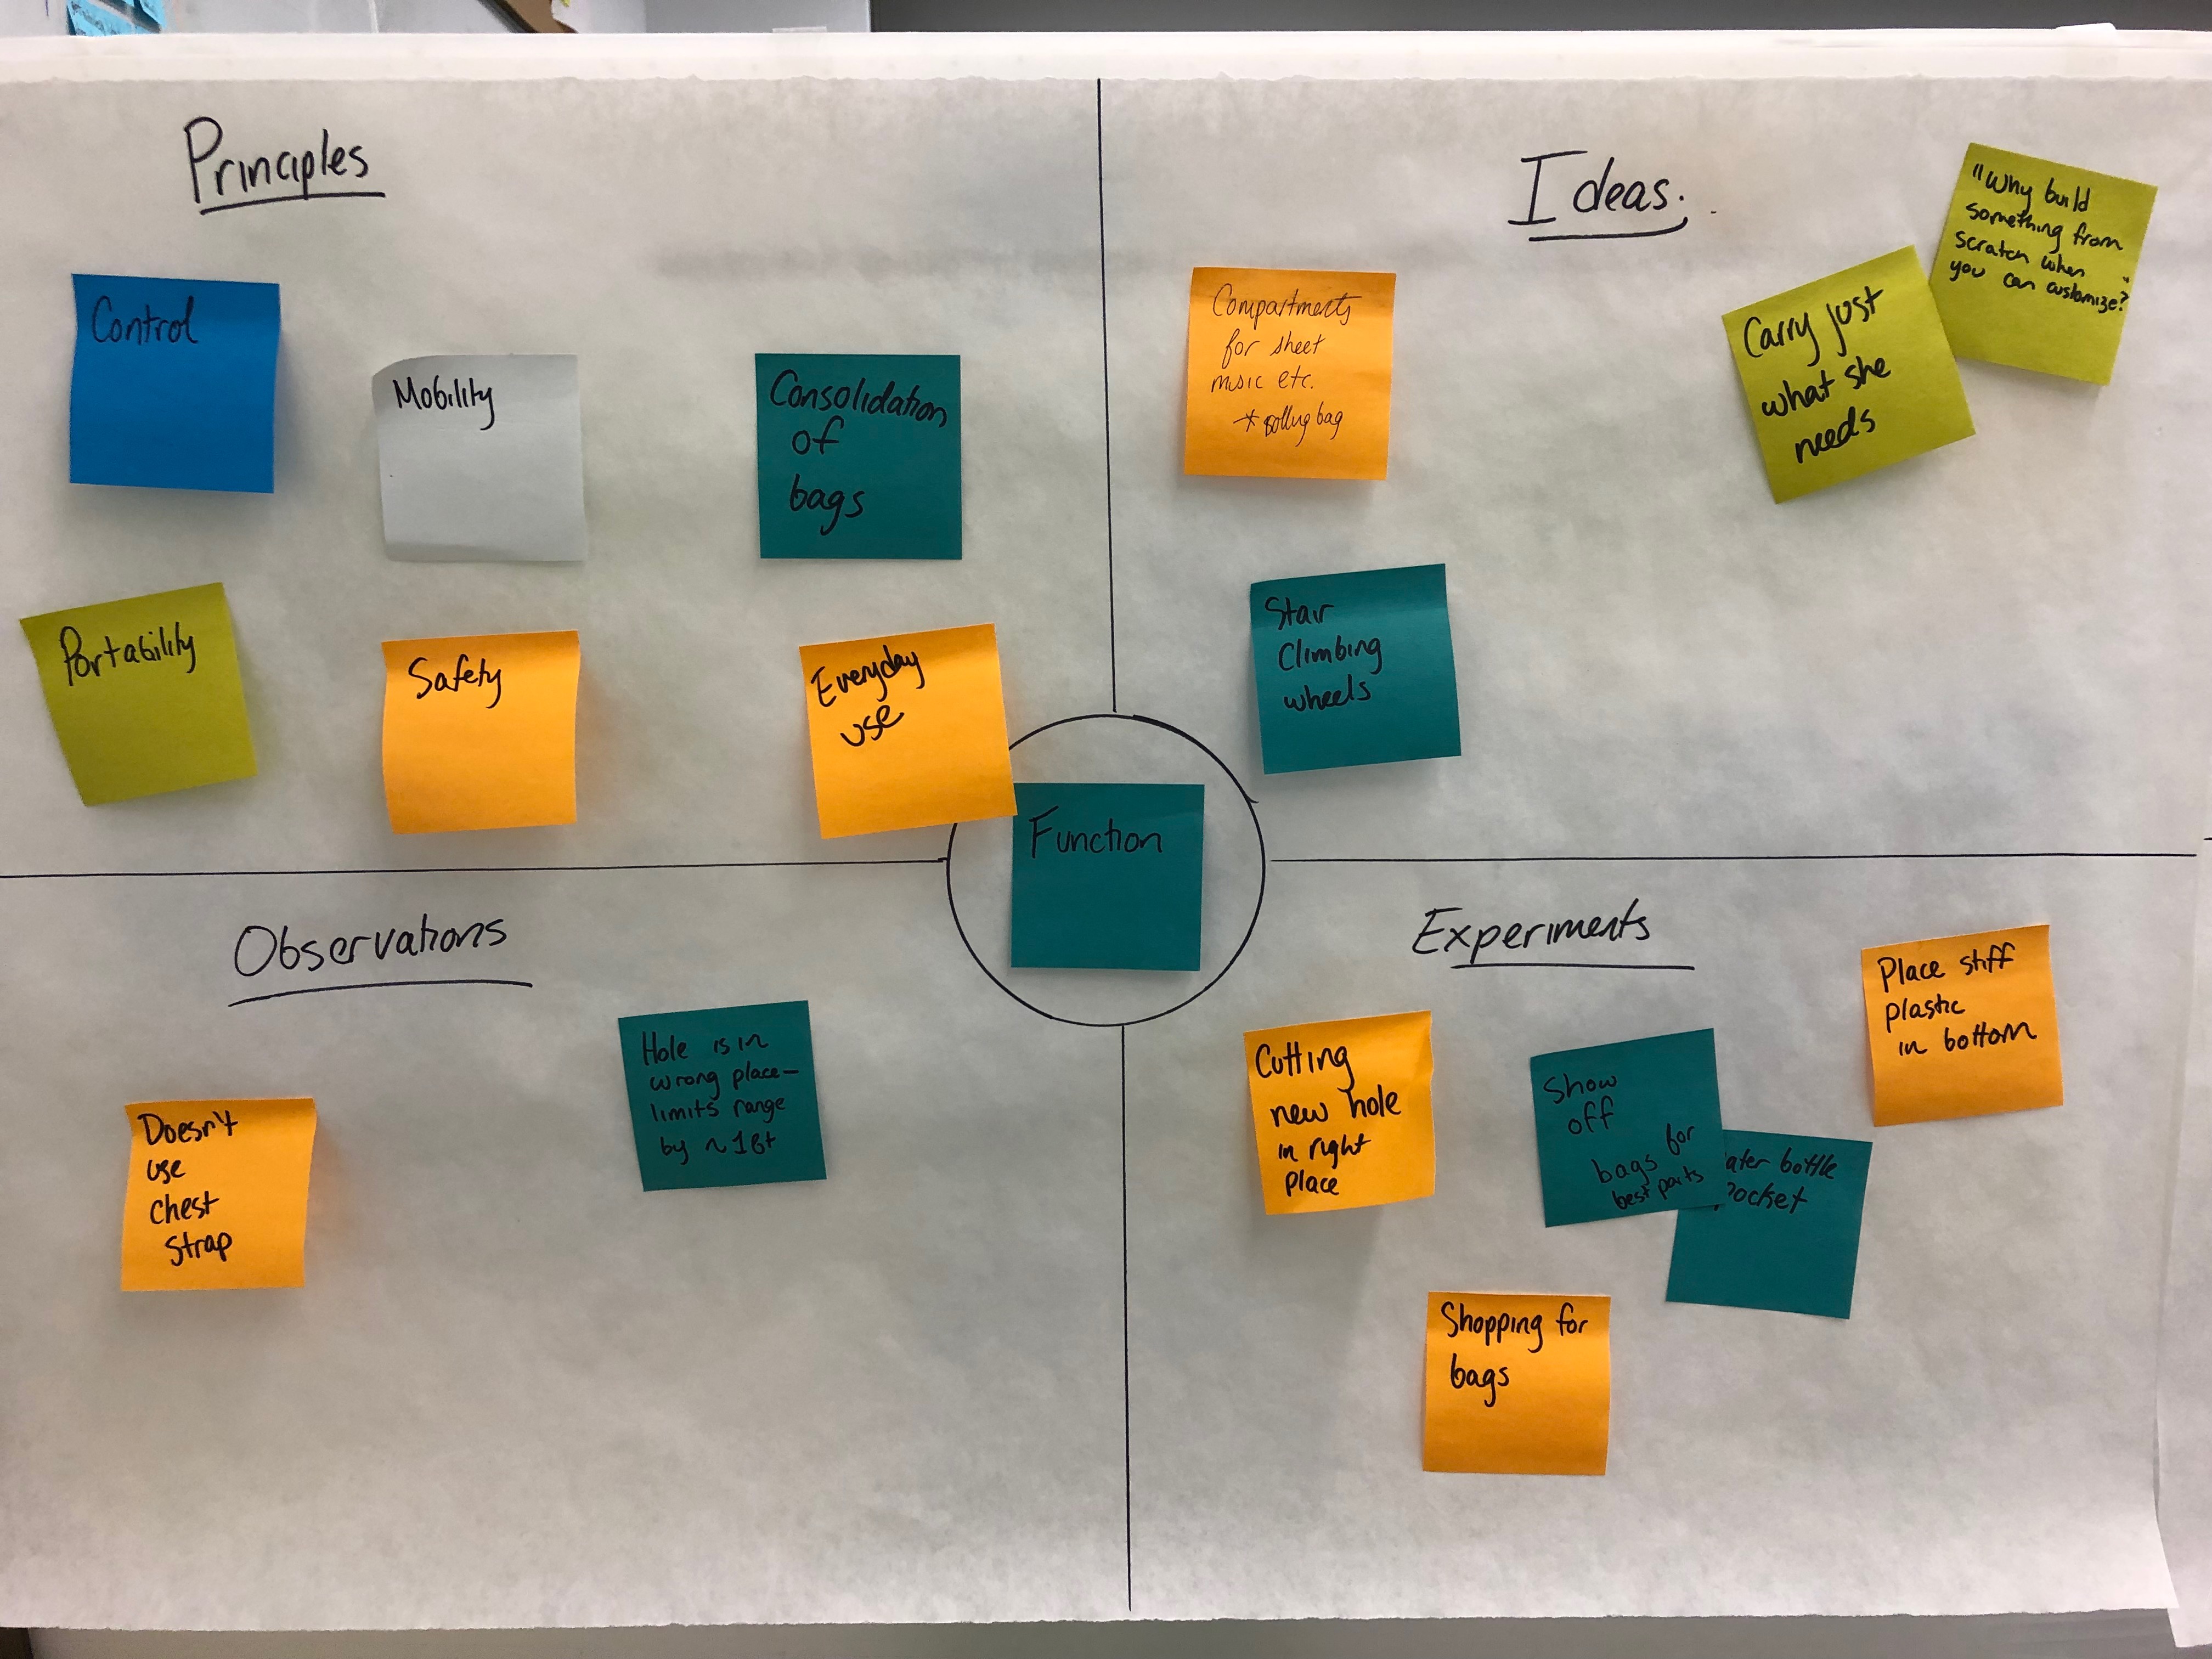 Principles
Control
Mobility
Consolidation
of
bags
Portability
Safety
Everyday
use
Ideas.
Compartments
for sheet
music etc.
* rolling bag
Carry just
what she
needs
"Why build
something from
scratch when
you can customize?"
Stair
Climbing
wheels
Function
Observations
Doesn't
use
chest
strap
Hole is in
wrong place—
limits range
by ~1ft
Experiments
Cutting
new hole
in right
place
Show
off
bags for
best parts
bottle
Place stiff
plastic
in bottom
Shopping for
bags